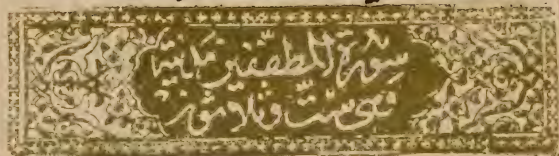 سورة المطففين مدنية
وهي ست وثلاثون